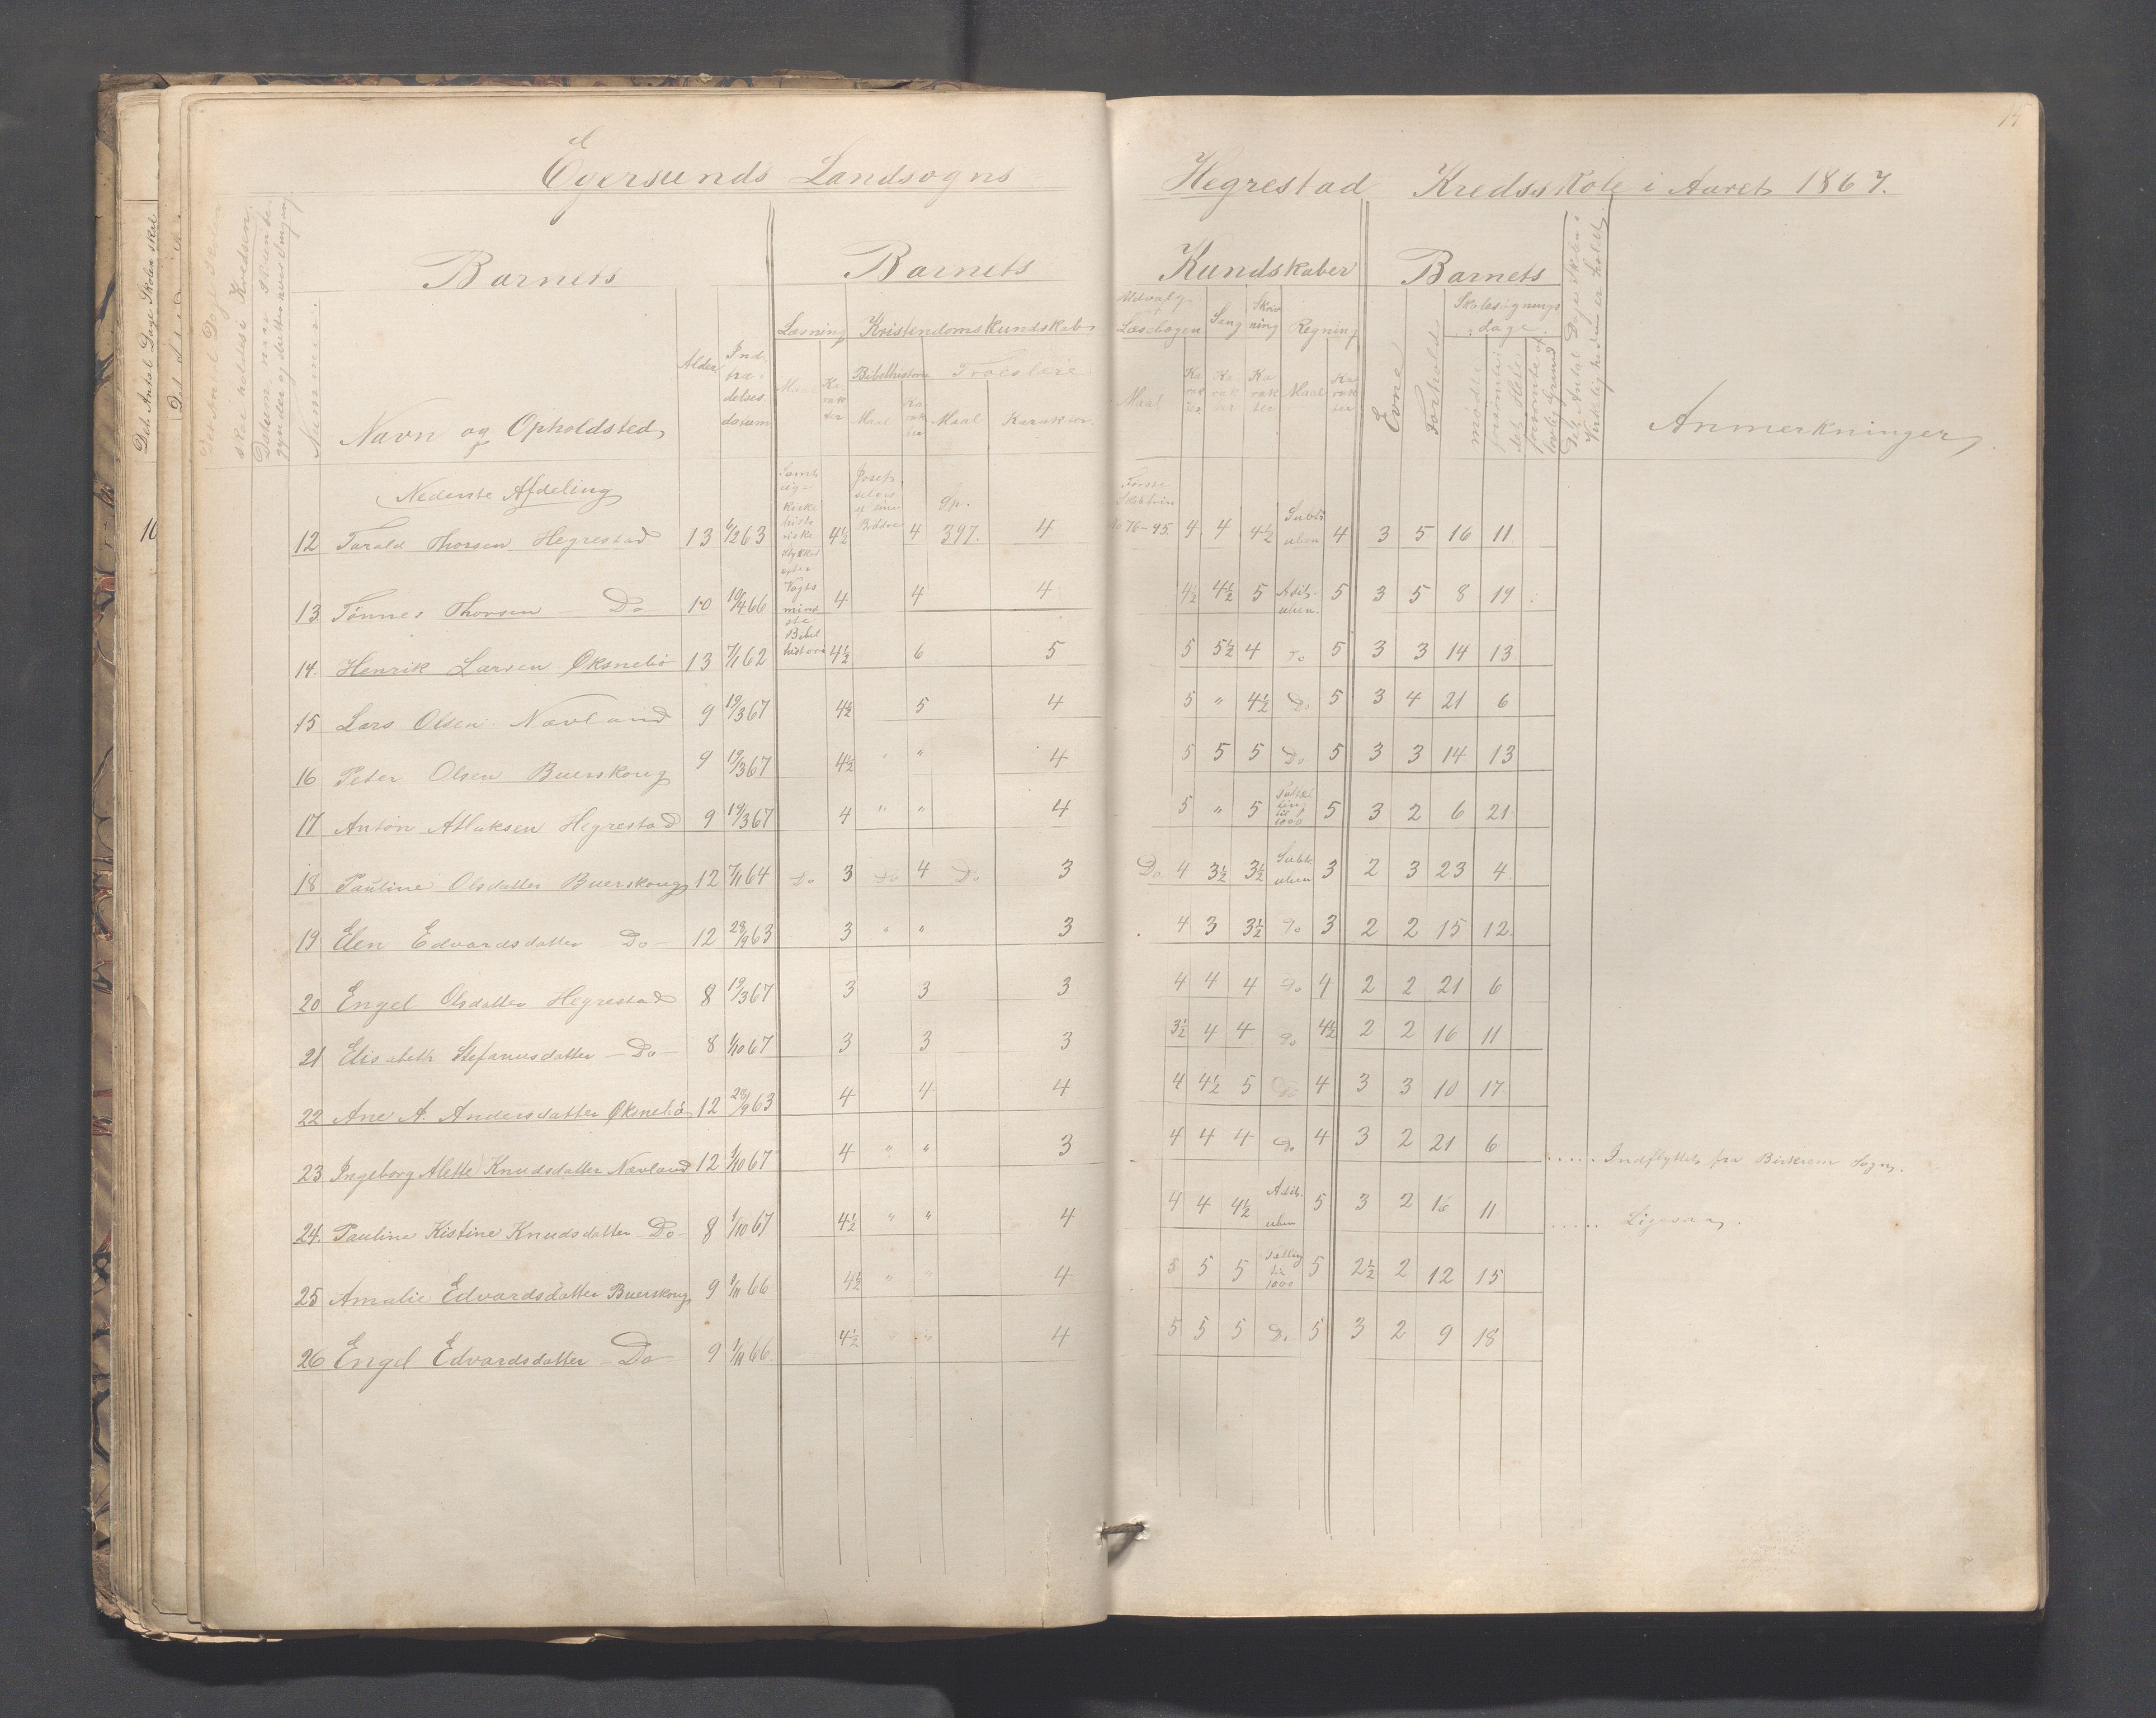 Egersunds Landsogns
Hegrestad Kredsskole i Aaret 1867.
Det Antal Dage Skolen skal
Barnets
Barnets
Kundskaber
Barnets
Det Antal Dage Skolen
skal holdes i Kredsen.
Nummer.
Navn og Opholdsted
Alder.
Ind-
træ-
delses
datum
Læsning
Kristendomskundskab
Maal
Ka-
rak
ter
Bibelhistorie
Maal
Ka
rak
ter
Troeslære
Maal
Karakter.
Udvalg
af
Læsebogen
Maal
Ka
rak
ter
Sang
Ka
rak
ter
Skriv
ning
Ka
rak
ter
Regning
Maal
Ka
rak
ter
Evne
Forhold
Skolesøgnings
Dage.
mødte
forsømte i
det Hele
forsømte af
lovlig Grund
Det Antal Dage Skolen i
Virkeligheden er holdt.
Anmerkninger
10
Nederste Afdeling
12 Tarald Thorsen Hegrestad 13 6/2 63 4½ 4 397. 4 No 76-95. 4 4 4½ 4 3 5 16 11
13 Tønnes Thorsen Do 10 10/4 66 4 4 4 4½ 4½ 5 5 3 5 8 19
14. Henrik Larsen Øksnebø 13 7/1 62 4½ 6 5 5 5½ 4 Do 5 3 3 14 13
15 Lars Olsen Navland 9 19/3 67 4½ 5 4 5 " 4½ Do 5 3 4 21 6
16 Peter Olsen Buerskoug 9 19/3 67 4½ " " 4 5 5 5 Do 5 3 3 14 13
17 Anton Atlaksen Hegrestad 9 19/3 67 4 " " 4 5 " 5 5 3 2 6 21
18 Pauline Olsdatter Buerskoug 12 7/11 64 Do 3 Do 4 Do 3 Do 4 3½ 3½ 3 2 3 23 4
19 Elen Edvardsdatter Do 12 29/9 63 3 " " 3 4 3 3½ Do 3 2 2 15 12
20 Engel Olsdatter Hegrestad 8 19/3 67 3 3 3 4 4 4 Do 4 2 2 21 6
21 Elisabeth Stefanusdatter - Do - 8 1/10 67 3 3 3 3½ 4 4 Do 4½ 2 2 16 11
22 Ane A. Andersdatter Øksnebø 12 29/9 63 4 4 4 4 4½ 5 Do 4 3 3 10 17
23 Ingeborg Alette Knudsdatter Navland 12 1/10 67 4 " " 3 4 4 4 Do 4 3 2 21 6 ..... Indflyttet fra Birkrem Sogn.
24. Pauline Kistine Knudsdatter Do 8 1/10 67 4½ " " 4 4 4 4½ 5 3 2 16 11 ..... Ligesaa.
25 Amalie Edvardsdatter Buerskoug 9 1/11 66 4½ " " 4 5 5 5 Tælling til 1000 5 2½ 2 12 15
26 Engel Edvardsdatter - Do 9 1/11 66 4½ " " 4 5 5 5 Do 5 3 2 9 18